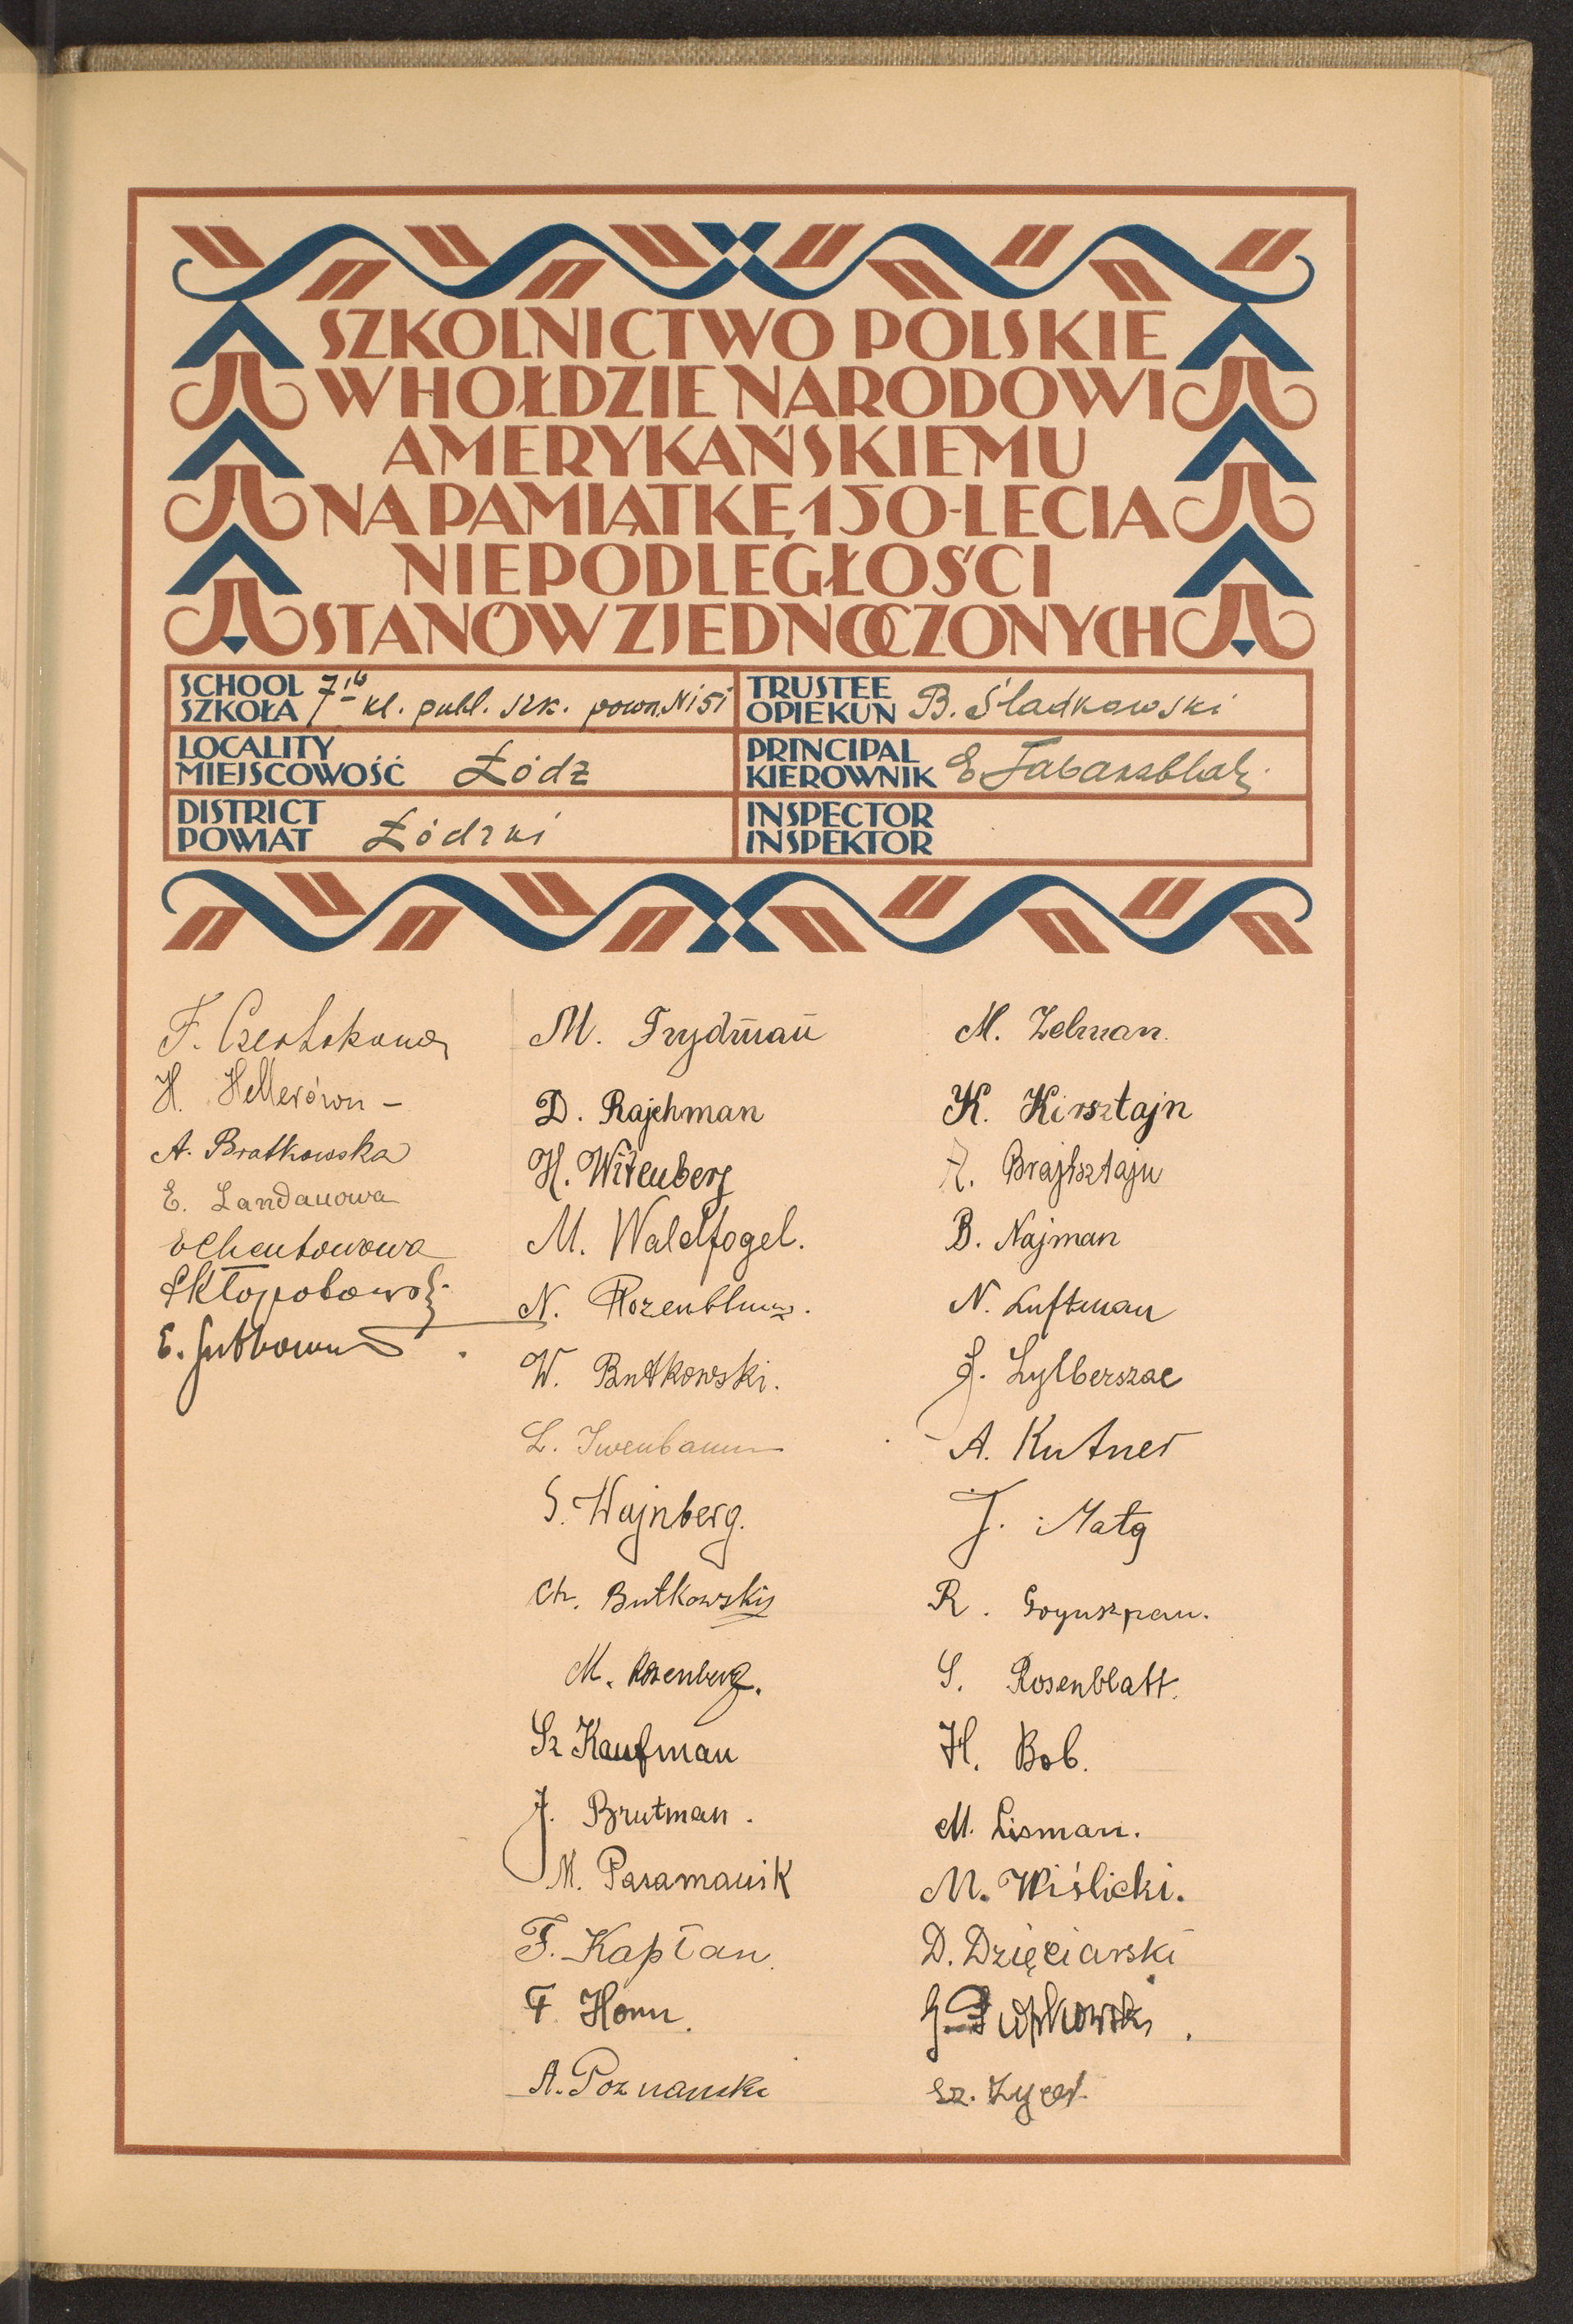 SZKOLNICTWO POLSKIE
W HOŁDZIE NARODOWI
AMERYKAŃSKIEMU
NA PAMIĄTKĘ 150-LECIA
NIEPODLEGŁOŚCI
STANÓW ZJEDNOCZONYCH
SCHOOL
SZKOŁA 7 kl. publ. szk. powsz.
TRUSTEE
OPIEKUN B. Śladkowski
LOCALITY
MIEJSCOWOŚĆ Łódz
PRINCIPAL
KIEROWNIK E
DISTRICT
POWIAT Łódzki
INSPECTOR
INSPEKTOR
F.
H. Hellerówn
A. Bratkowska
E. Landauowa
E.
M. Frydman
D. Rajchman
H. Witenberg
M. Waldfogel.
N. Rozenblum.
W. Butkowski.
L.
S. Wajnberg.
Ch. Butkowski
M. Rosenberg.
Sz Kaufman
J. Brutman.
M. Paramanik
F. Kapłan.
F. Horn.
A. Poznanski
M. Zelman.
K. Kirsztajn
Brajtsztajn
B. Najman
N. Luftman
J. Zylberszac
A. Kutner
J. Mata
R.
S. Rosenblatt.
H. Bob.
M. Lisman.
M. Wiślicki.
D. Dzięciarski
G.
Sz.